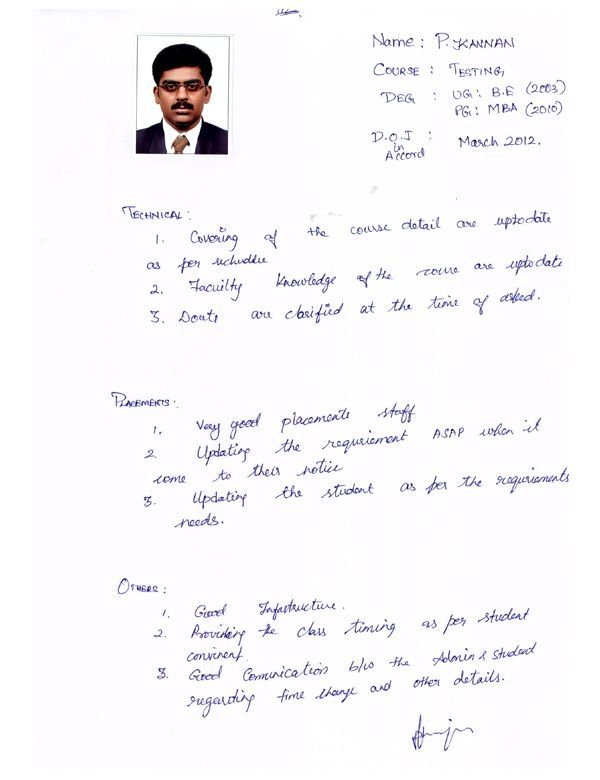 Name : P. KANNAN
COURSE : TESTING,
DEG : UG : B.E (2003)
PG : MBA (2010)
D.O.J in Accord : March 2012.
TECHNICAL :
1. Covering of the course detail are uptodate
as per schuddle
2. Faculity Knowledge of the course are uptodate
3. Douts are clarified at the time of asked.
PLACEMENTS :
1. Very good placements staff
2. Updating the requriement ASAP when it
come to their notice
3. Updating the student as per the requriements
needs.
OTHERS :
1. Good Infastructure.
2. Providing the class timing as per student
convinent
3. Good Comunication b/w the Admin & Student
regarding time change and other details.